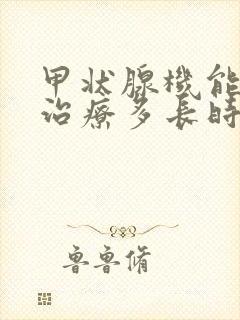 甲状腺機能
治療多長時
鲁鲁脩